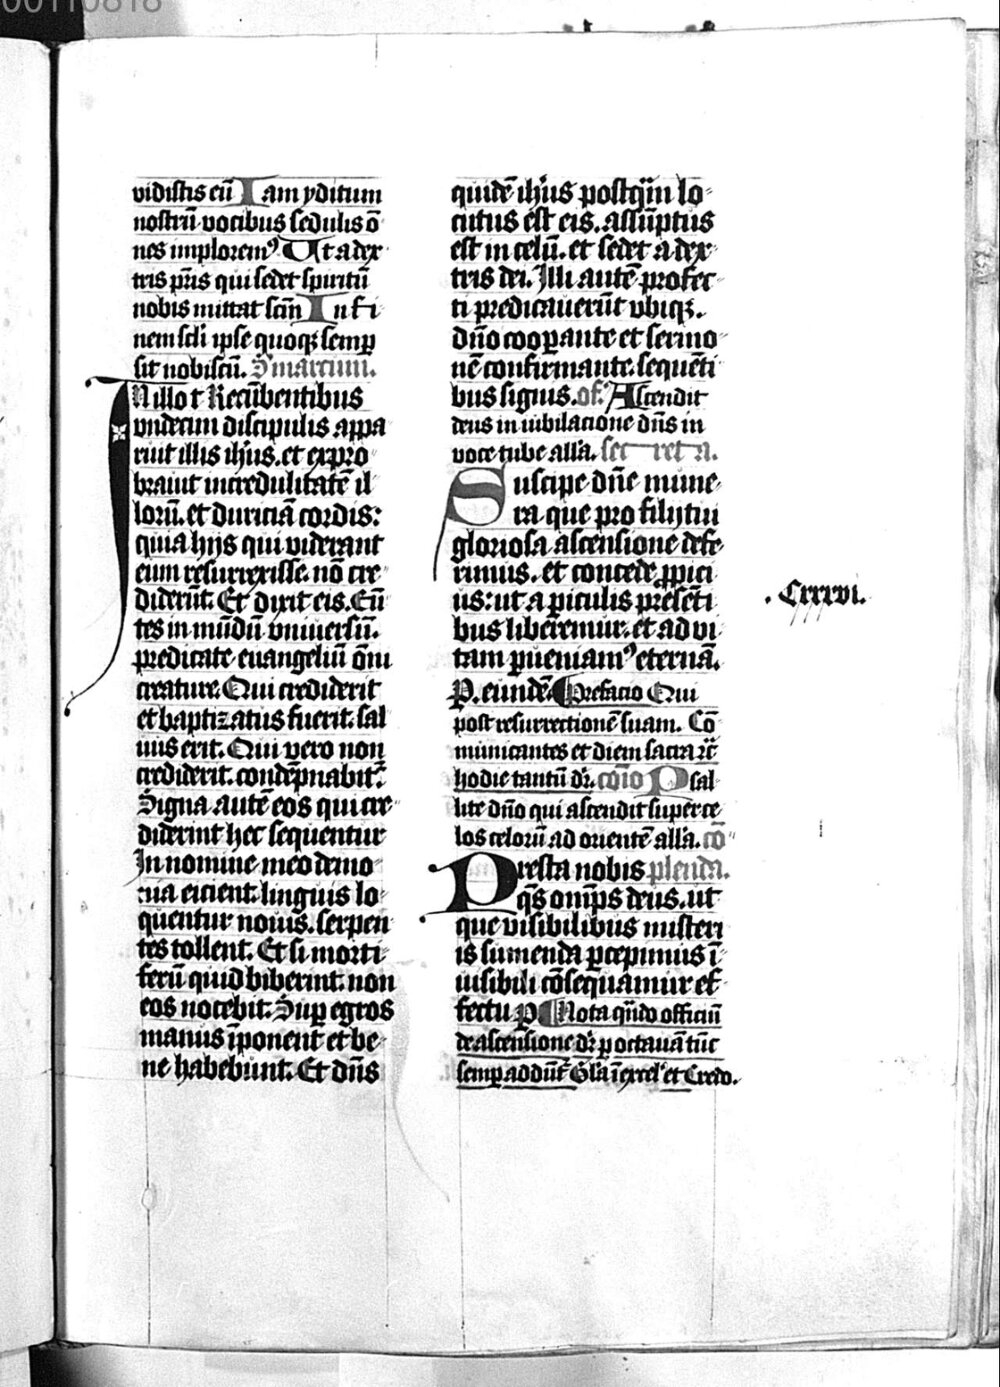 00110818
vidistis cū Iam yditum
nostrū vocibus sedulis ō
nes implorem⁹ Ut a dex
tris pr̄is qui sedet spiritū
nobis mittat scm̄ In fi
nem scli ipse quoqꝫ semp
sit nobiscū. S marcum.
IN illo t̄ Recūbentibus
undecim discipulis appa
ruit illis ih̄us. et expro
bravit incredulitatē il
lorū. et duriciā cordis:
quia hijs qui viderant
eum resurrexisse. nō cre
diderūt. Et dixit eis. Eū
tes in mūdū universū.
predicate euangeliū ōni
creature. Qui crediderit
et baptizatus fuerit. sal
vus erit. Qui vero non
crediderit. condēpnabit᷑
Signa autē eos qui cre
diderint hec sequentur
In nomine meo demo
nia eicient. linguis lo
quentur novis. serpen
tes tollent. Et si morti
ferū quid biberint. non
eos nocebit. Sup egros
manus īponent et be
ne habebunt. Et dn̄s
quidē ih̄us postqm̄ lo
cutus est eis. assūptus
est in celū. et sedet a dex
tris dei. Illi autē profec
ti predicaverūt ubiqꝫ.
dn̄o coopante et sermo
nē confirmante. sequēti
bus signis. of. Ascendit
deus in iubilacione dn̄s in
voce tube all̄a. secreta.
Suscipe dn̄e mune
ra que pro filij tui
gloriosa ascensione defe
rimus. et concede ꝓpici
us: ut a piculis pr̄esēti
bus liberemur. et ad vi
tam pueniam⁹ eternā.
P. eundē. Prefacio Qui
post resurrectionē suam. Cō
municantes et diem sacra rc̄
hodie tantū dr̄. cōio Psal
lite dn̄o qui ascendit super ce
los celorū ad orientē all̄a. cō
Presta nobis plenda.
qs̄ omps̄ deus. ut
que visibilibus misteri
is sumenda pcepimus ī
visibili cōsequamur ef
fectu. P. Nota qn̄do officiū
de ascensione dr̄ p octavā tūc
semp addūt᷑ Gl̄a ī excel' et Credo.
. Cxxxvi.